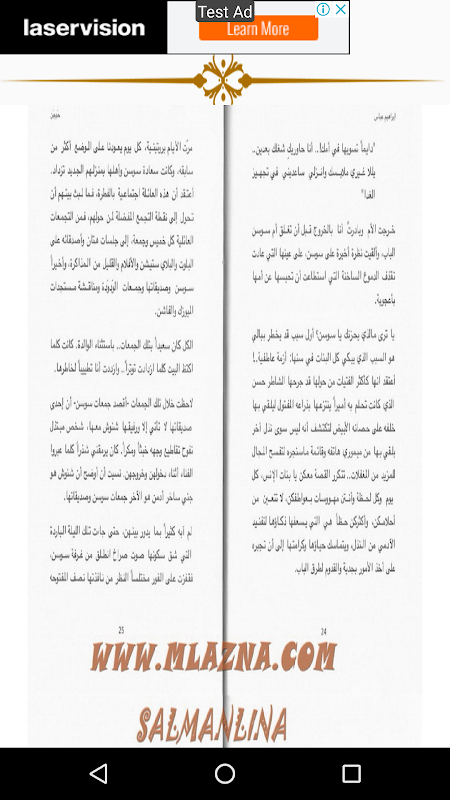 laservision
Test Ad
Learn More
إبراهيم عباس
"دايماً تسويها في أمك!.. أنا حاوريك شغلك بعدين..
يللا غيري ملابسك وانزلي ساعديني في تجهيز
الغدا"
خرجت الأم وبادرتُ أنا بالخروج قبل أن تغلق أم سوسن
الباب، وألقيت نظرة أخيرة على سوسن، على عينها التي عادت
تقذف الدموع الساخنة التي استطاعت أن تحبسها عن أمها
بأعجوبة.
يا ترى مالذي يحزنك يا سوسن؟ أول سبب قد يخطر ببالي
هو السبب الذي يبكي كل البنات في سنها: أزمة عاطفية..!
أعتقد أنها كأكثر الفتيات من حولها قد جرحها الشاطر حسن
الذي كانت تحلم به أميراً ينتزعها بذراعه المفتول ليلقي بها
خلفه على حصانه الأبيض لتكتشف أنه ليس سوى نذل آخر
يلقي بها من ميموري هاتفه وقائمة ماسنجره لتفسح المجال
للمزيد من المغفلات.. تتكرر القصة معكن يا بنات الإنس، كل
يوم وكل لحظة وأنتن مهووسات بعواطفكن، لا تتعبن من
أحلامكن، وأكثركن حظاً هي التي يسعفها ذكاؤها لتفنيد
الآدمي من النذل، ويتماسك حياؤها وكرامتها إلى أن تجبره
على أخذ الأمور بجدية والقدوم لطرق الباب.
24
حوجن
مرّت الأيام بروتينية، كل يوم يعودنا على الوضع أكثر من
سابقه، وكانت سعادة سوسن وأهلها بمنزلهم الجديد تزداد.
أعتقد أن هذه العائلة اجتماعية بالفطرة، فما لبث بيتهم أن
تحول إلى نقطة التجمع المفضلة لمن حولهم، فمن التجمعات
العائلية كل خميس وجمعة، إلى جلسات هتان وأصدقائه على
البلوت والبلاي ستيشن والأفلام والقليل من المذاكرة، وأخيراً
سوسن وصديقاتها وجمعات ومناقشة مستجدات
البوزك والفاشن.
الكل كان سعيداً بتلك الجمعات.. باستثناء الوالدة. كانت كلما
اكتظ البيت كلما ازدادت توتراً.. وازددت أنا تطييباً لخاطرها.
لاحظت خلال تلك الجمعات -أقصد جمعات سوسن- أن إحدى
صديقاتها لا تأتي إلا ورفيقها شنوش معها، شخص مبتذل
تفوح تقاطيع وجهه خبثاً ومكراً. كان يرمقني شذراً كلما عبروا
الفناء أثناء دخولهن وخروجهن. نسيت أن أوضح أن شنوش هو
جني ساخر أدمن هو الآخر جمعات سوسن وصديقاتها.
لم آبه كثيراً بما يدور بينهن، حتى جاءت تلك الليلة الباردة
التي شق سكونها صوت صراخ انطلق من غرفة سوسن،
فقفزت على الفور مختلساً النظر من نافذتها نصف المفتوحة
25
WWW.MLAZNA.COM
SALMANLINA